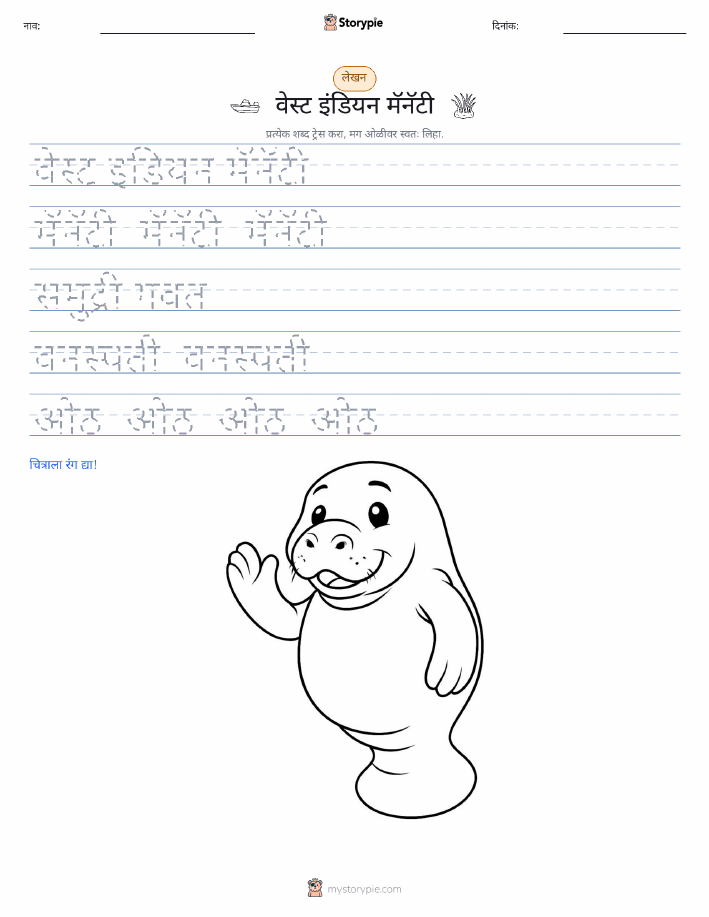 नाव:
Storypie
दिनांक:
लेखन
वेस्ट इंडियन मॅनॅटी
प्रत्येक शब्द ट्रेस करा, मग ओळीवर स्वतः लिहा.
वेस्ट इंडियन मॅनॅटी
मॅनॅटी मॅनॅटी मॅनॅटी
समुद्री गवत
वनस्पती वनस्पती
ओठ ओठ ओठ ओठ
चित्राला रंग द्या!
mystorypie.com